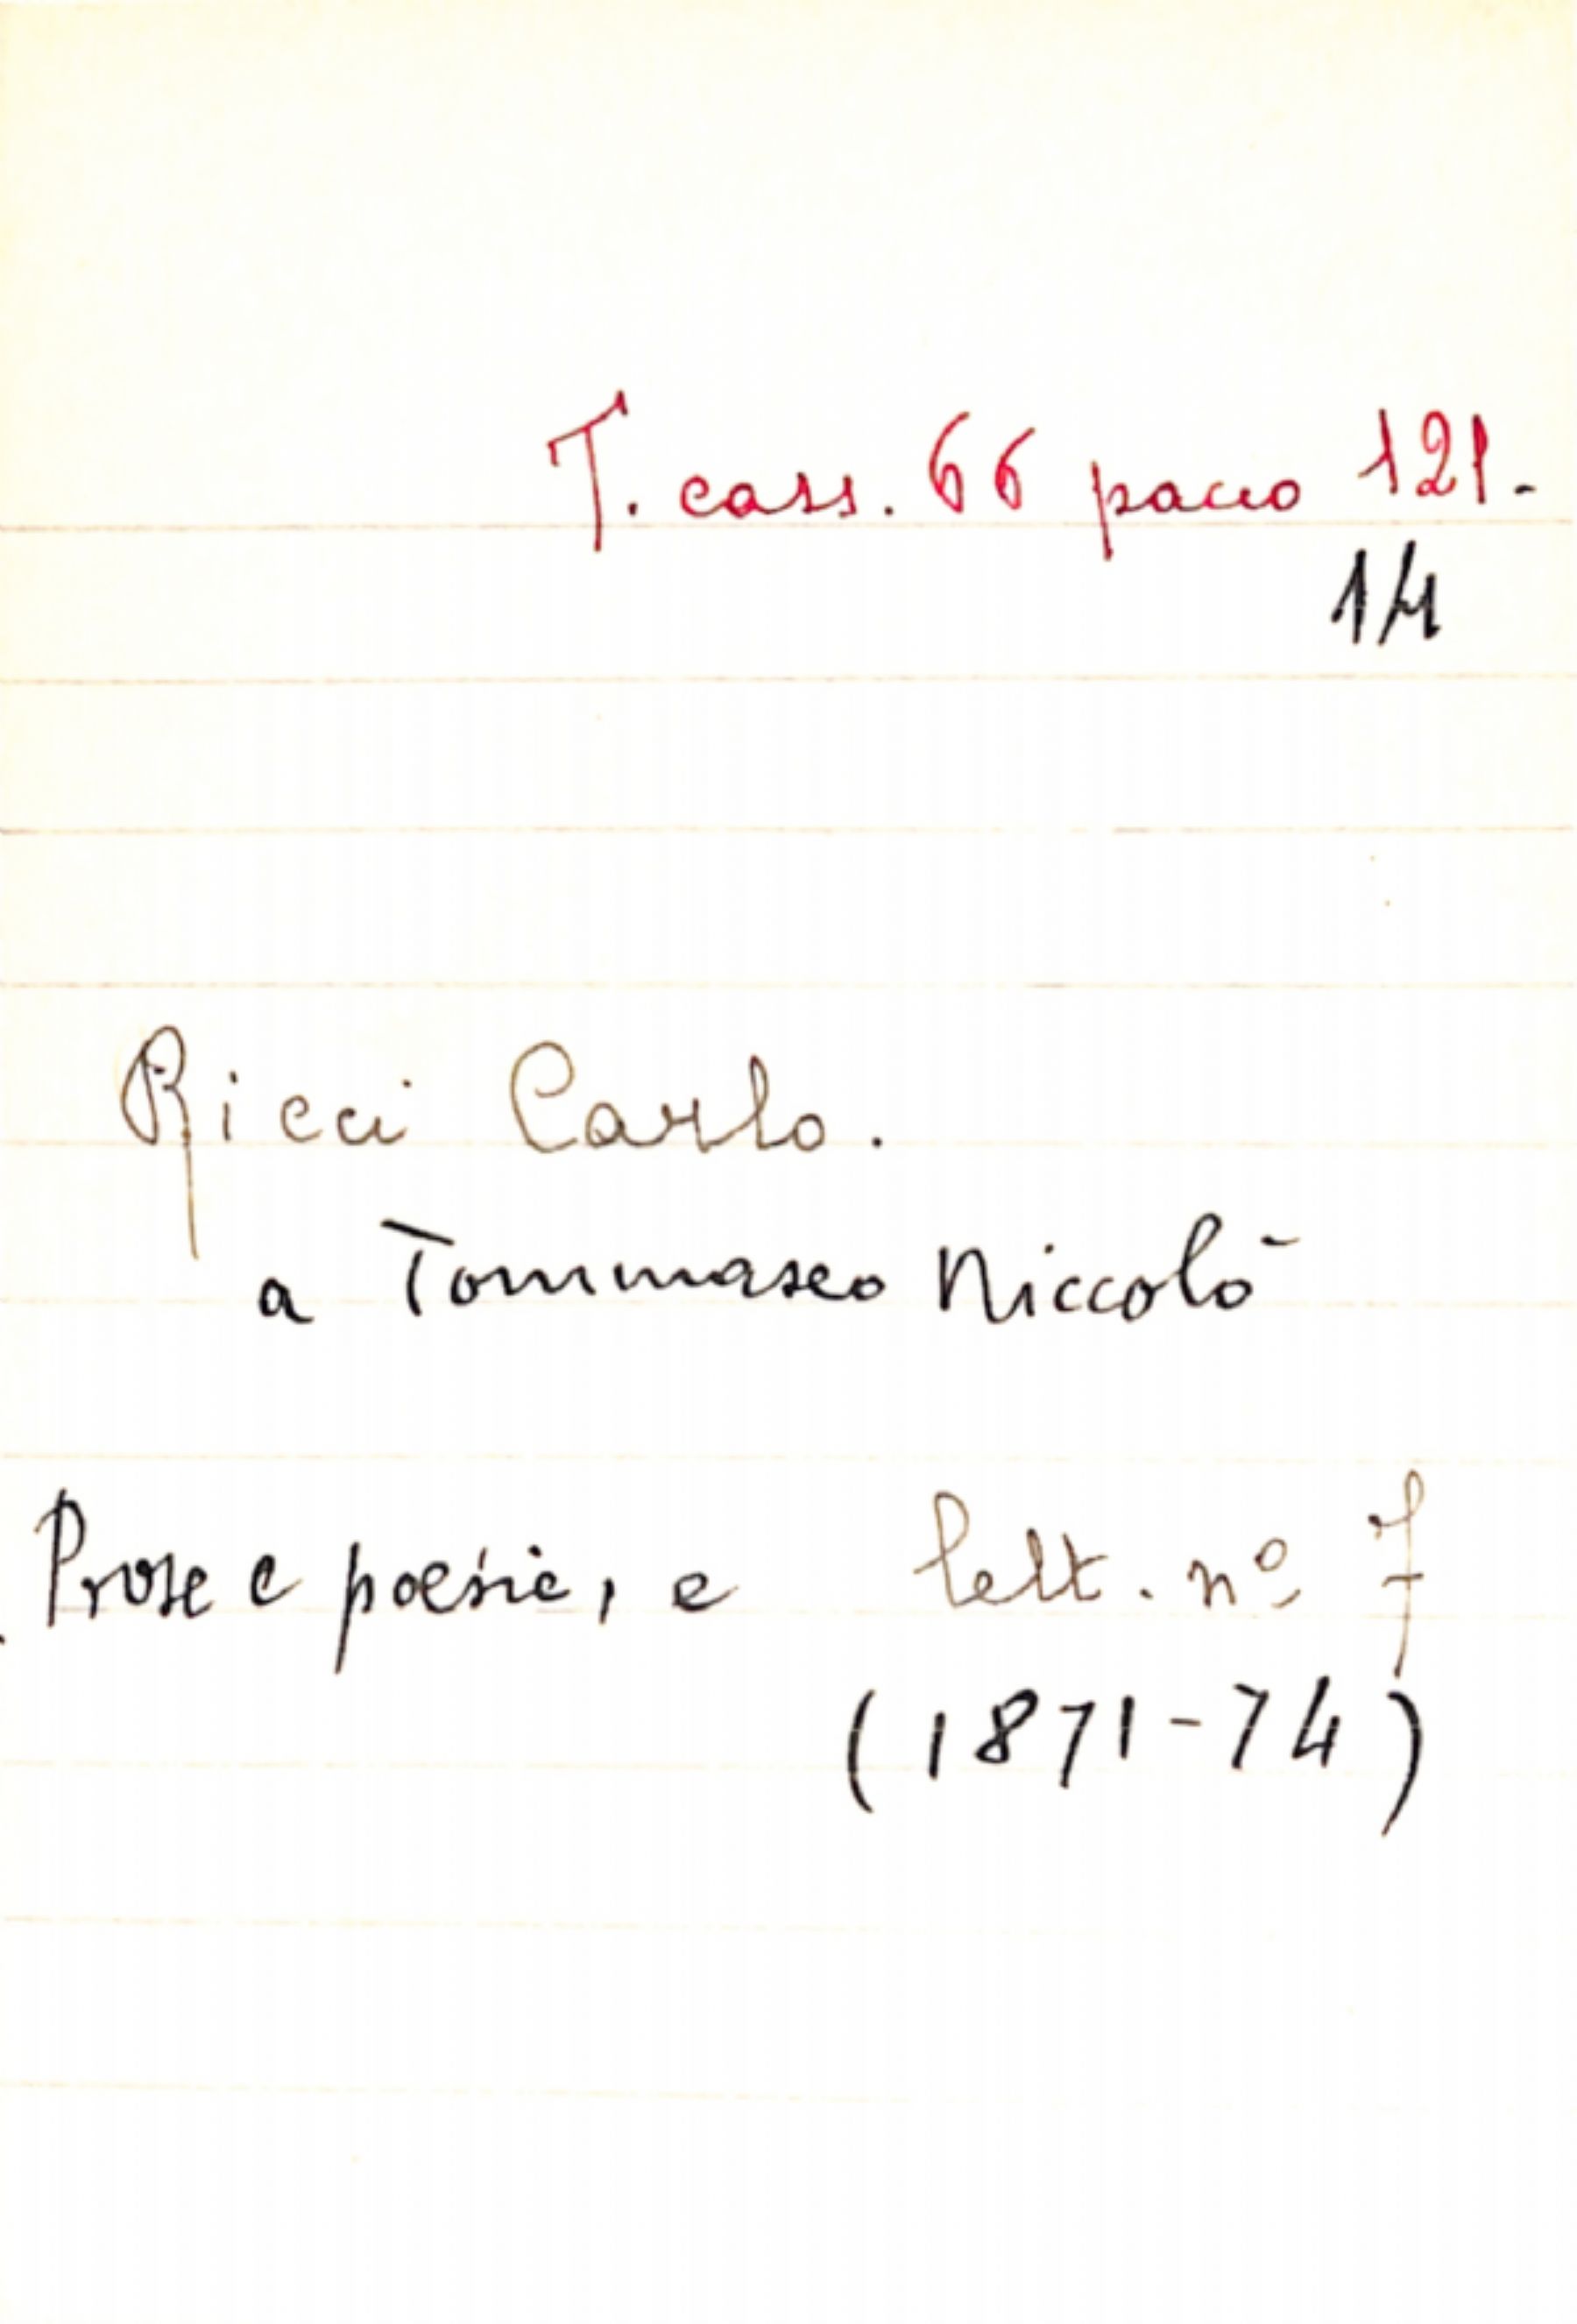 T. cass. 66 pacco 121.
14
Ricci Carlo.
a Tommaseo Niccolò
Prose e poesie, e lett. nº 7
(1871-74)